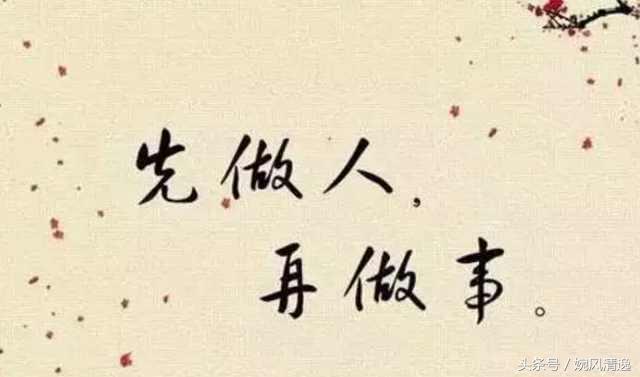 先做人，
再做事。
头条号／婉风清逸